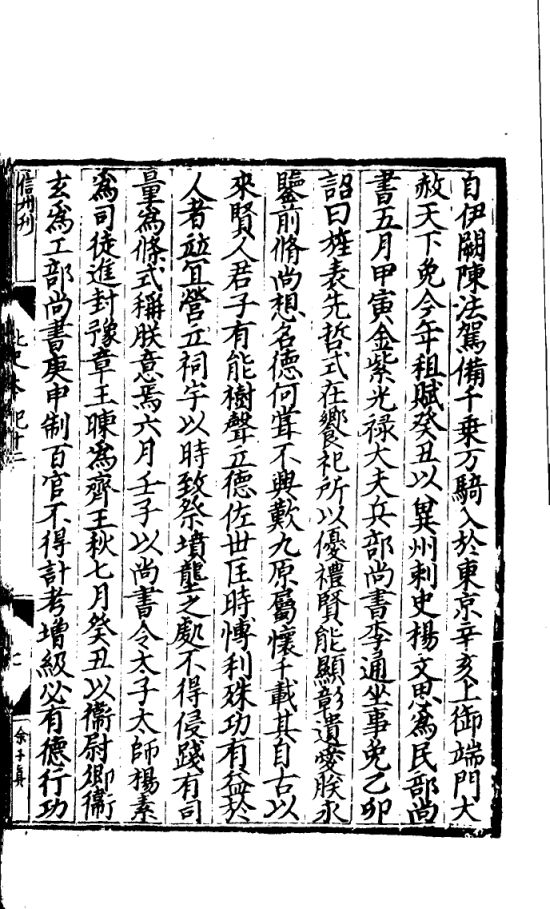 自伊闕陳法駕備千乘万騎入於東京辛亥上御端門大
赦天下免今年租賦癸丑以兾州刺史楊文思爲民部尚
書五月甲寅金紫光禄大夫兵部尚書李通坐事免乙卯
詔曰旌表先哲式在饗祀所以優禮賢能顯彰遺愛朕永
鑒前脩尚想名德何甞不興歎九原屬懷千載其自古以
來賢人君子有能樹聲立德佐世匡時愽利殊功有益於
人者並宜營立祠宇以時致祭墳壟之處不得侵踐有司
量爲條式稱朕意焉六月壬子以尚書令太子太師楊素
爲司徒進封豫章王暕爲齊王秋七月癸丑以衞尉卿衞
玄爲工部尚書庚申制百官不得計考增級必有德行功
信州刋
北史本紀十二
余子真